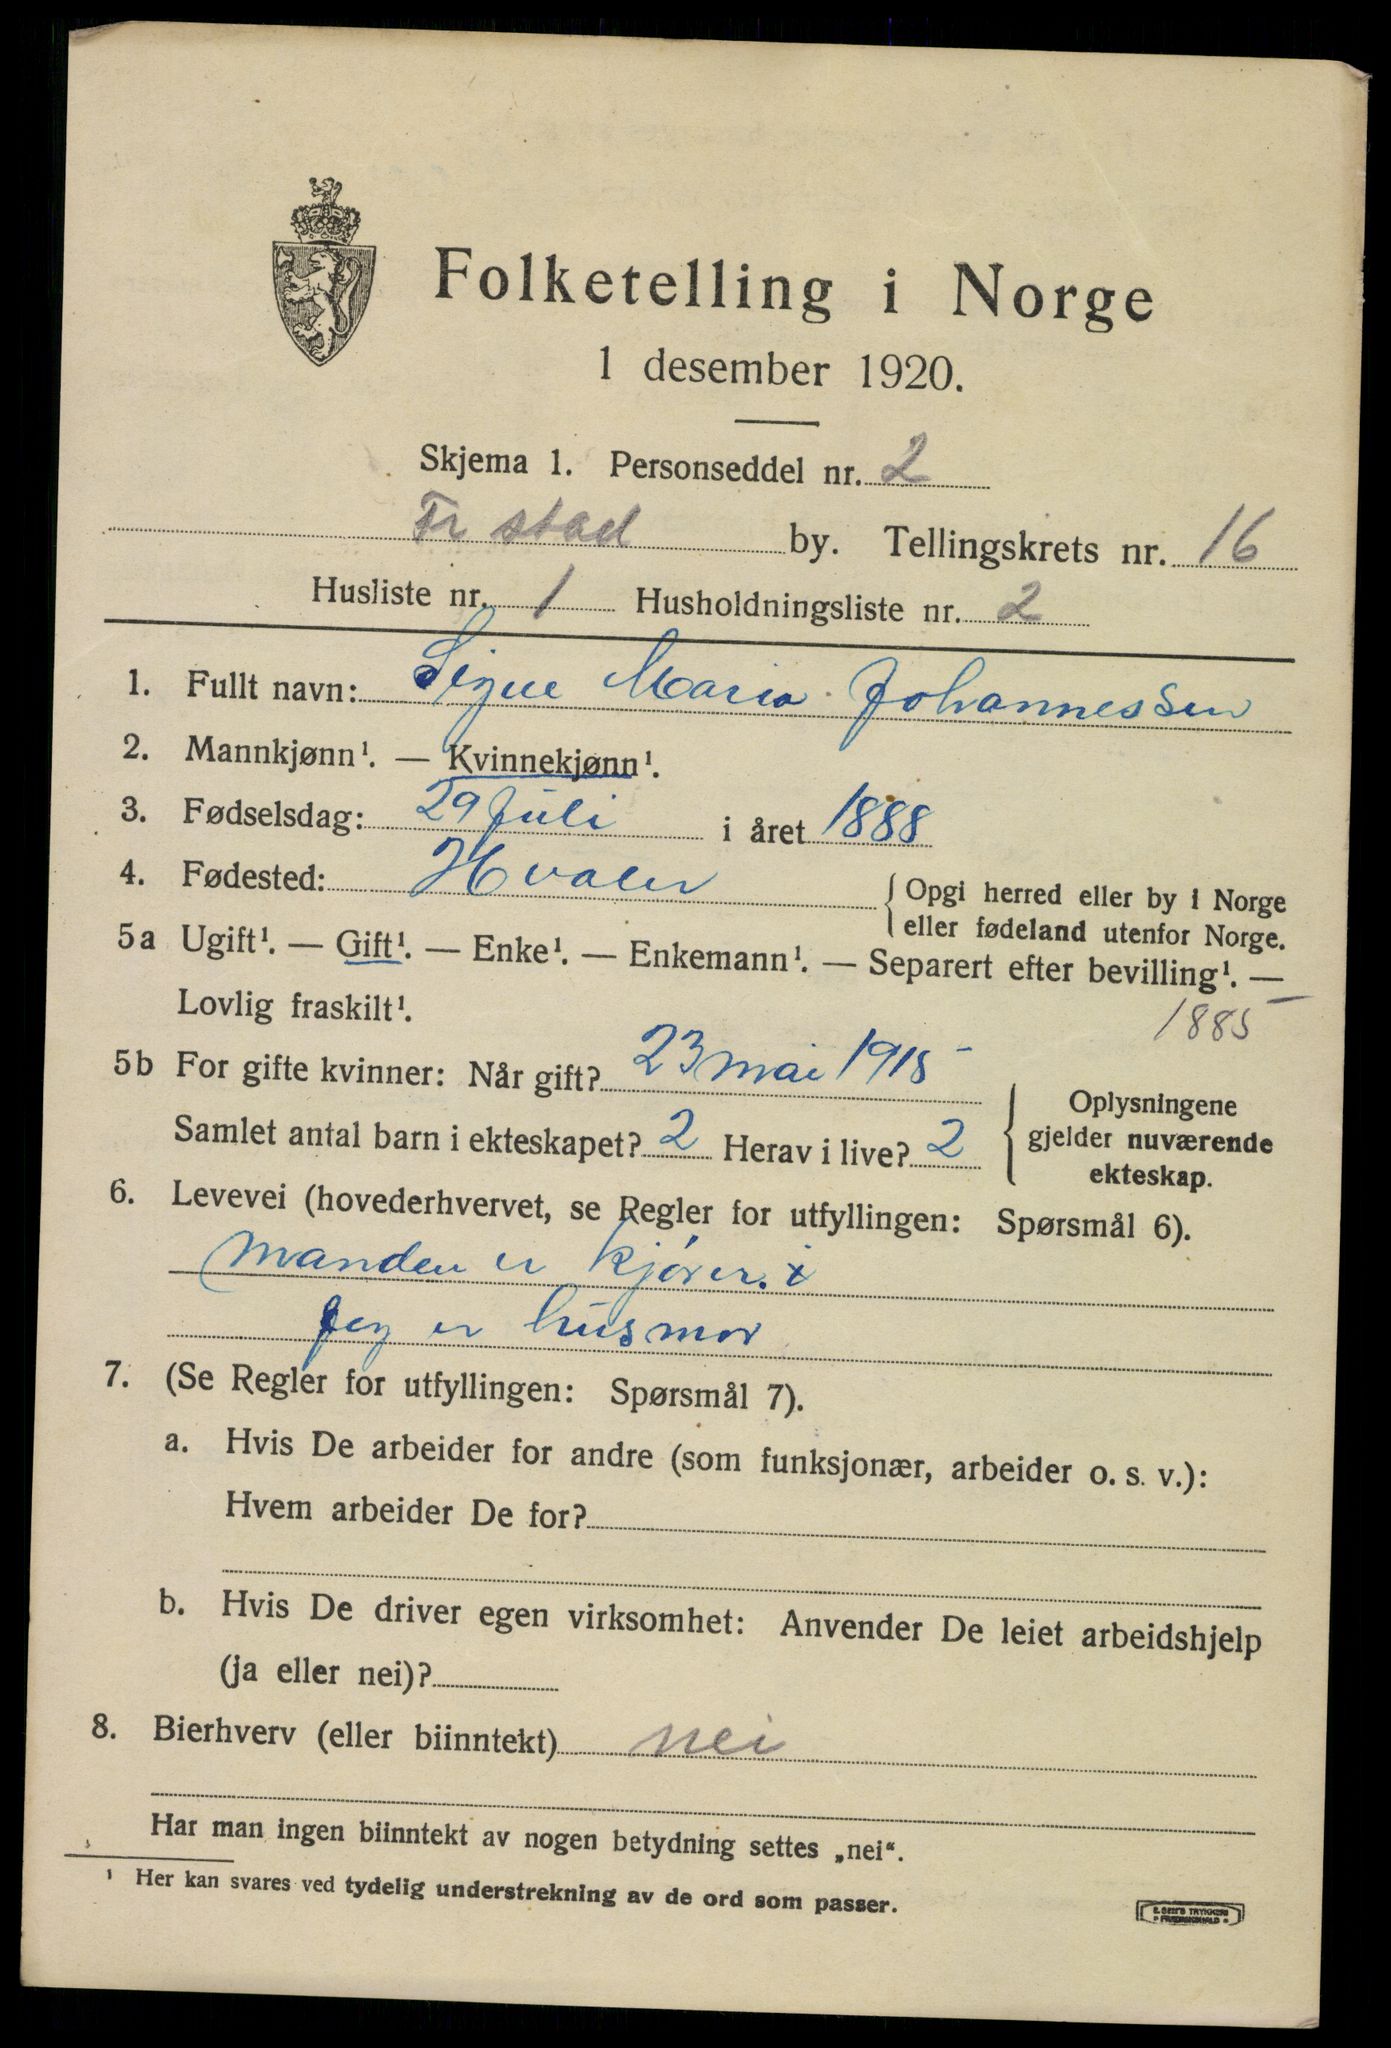 Folketelling i Norge
1 desember 1920.
Skjema 1. Personseddel nr. 2
Fr stad by. Tellingskrets nr. 16
Husliste nr. 1 Husholdningsliste nr. 2
1. Fullt navn: Signe Maria Johannessen
2. Mannkjønn¹. — Kvinnekjønn¹.
3. Fødselsdag: 29 Juli i året 1888
4. Fødested: Hvaler
{ Opgi herred eller by i Norge
eller fødeland utenfor Norge.
5a Ugift¹. — Gift¹. — Enke¹. — Enkemann¹. — Separert efter bevilling¹. —
Lovlig fraskilt¹.
1885
5b For gifte kvinner: Når gift? 23 mai 1915
Samlet antal barn i ekteskapet? 2 Herav i live? 2
{ Oplysningene
gjelder nuværende
ekteskap.
6. Levevei (hovederhvervet, se Regler for utfyllingen: Spørsmål 6).
Manden er kjører. x
Jeg er husmor
7. (Se Regler for utfyllingen: Spørsmål 7).
a. Hvis De arbeider for andre (som funksjonær, arbeider o. s. v.):
Hvem arbeider De for?
b. Hvis De driver egen virksomhet: Anvender De leiet arbeidshjelp
(ja eller nei)?
8. Bierhverv (eller biinntekt) nei
Har man ingen biinntekt av nogen betydning settes „nei“.
¹ Her kan svares ved tydelig understrekning av de ord som passer.